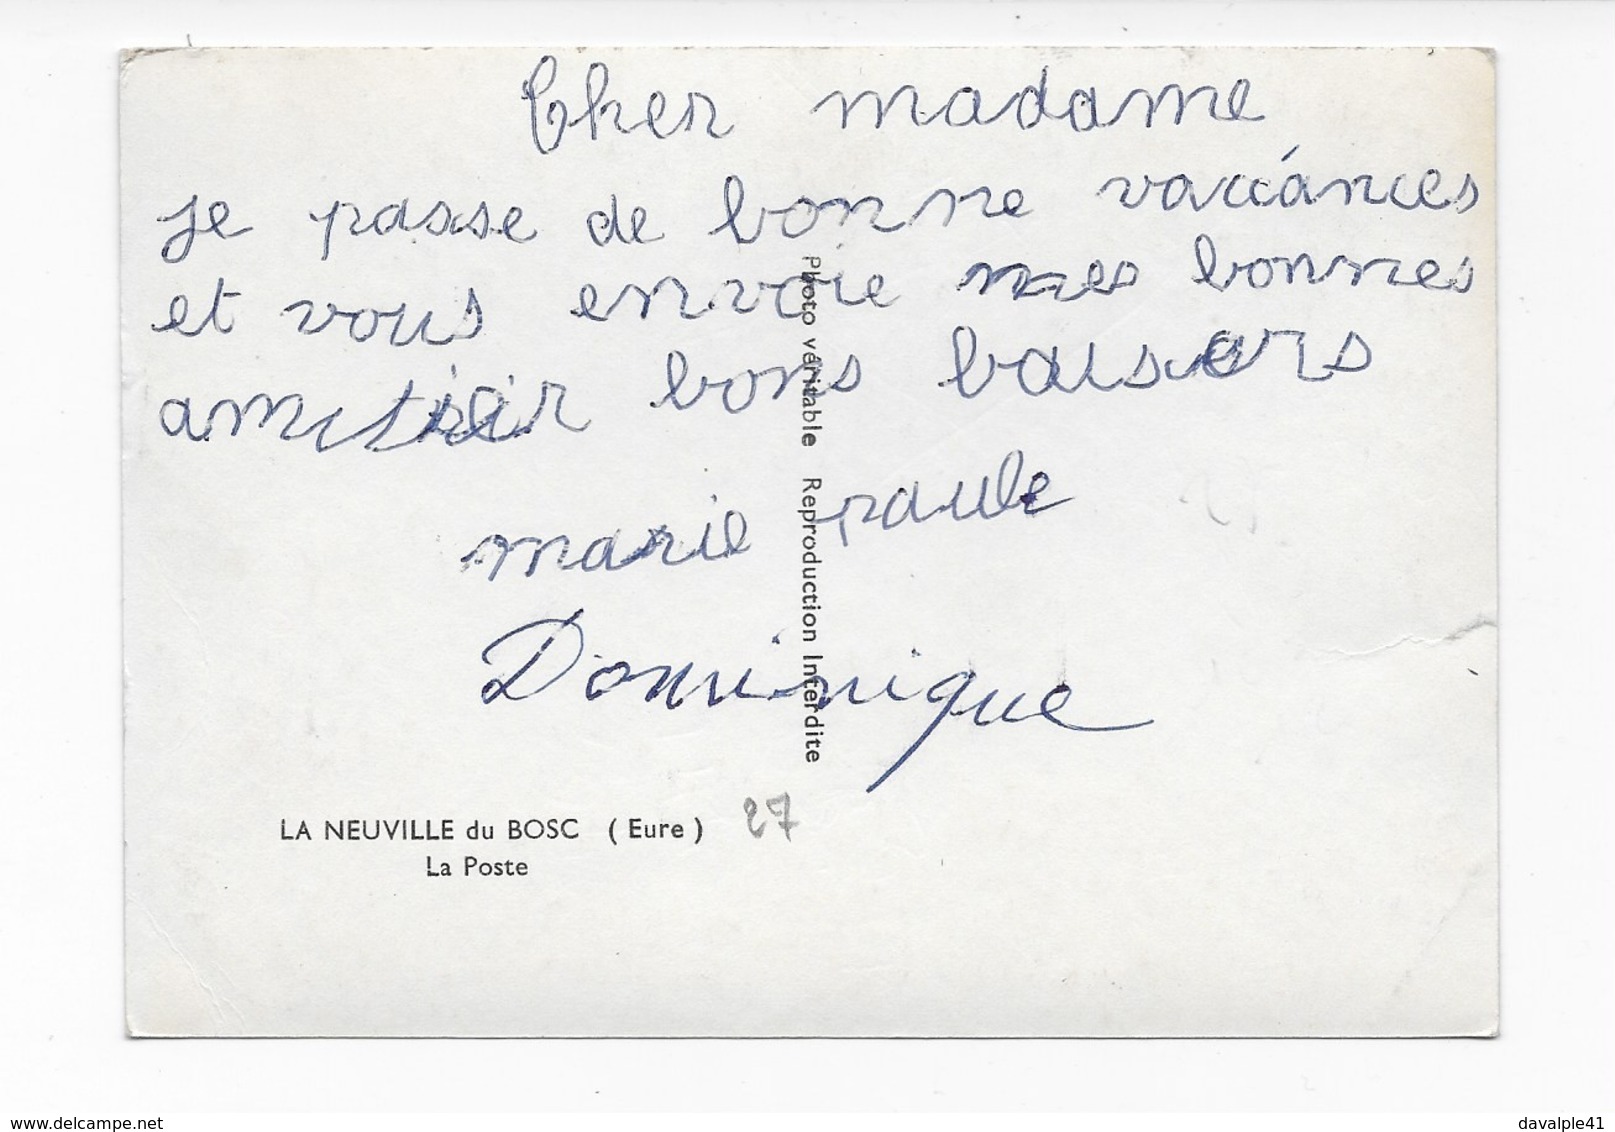 Cher madame
je passe de bonne vacánces
et vous envoie mes bonnes
bons baisers
marie paule
Dominique
Photo véritable Reproduction Interdite
LA NEUVILLE du BOSC (Eure) 27
La Poste
www.delcampe.net
davalple41